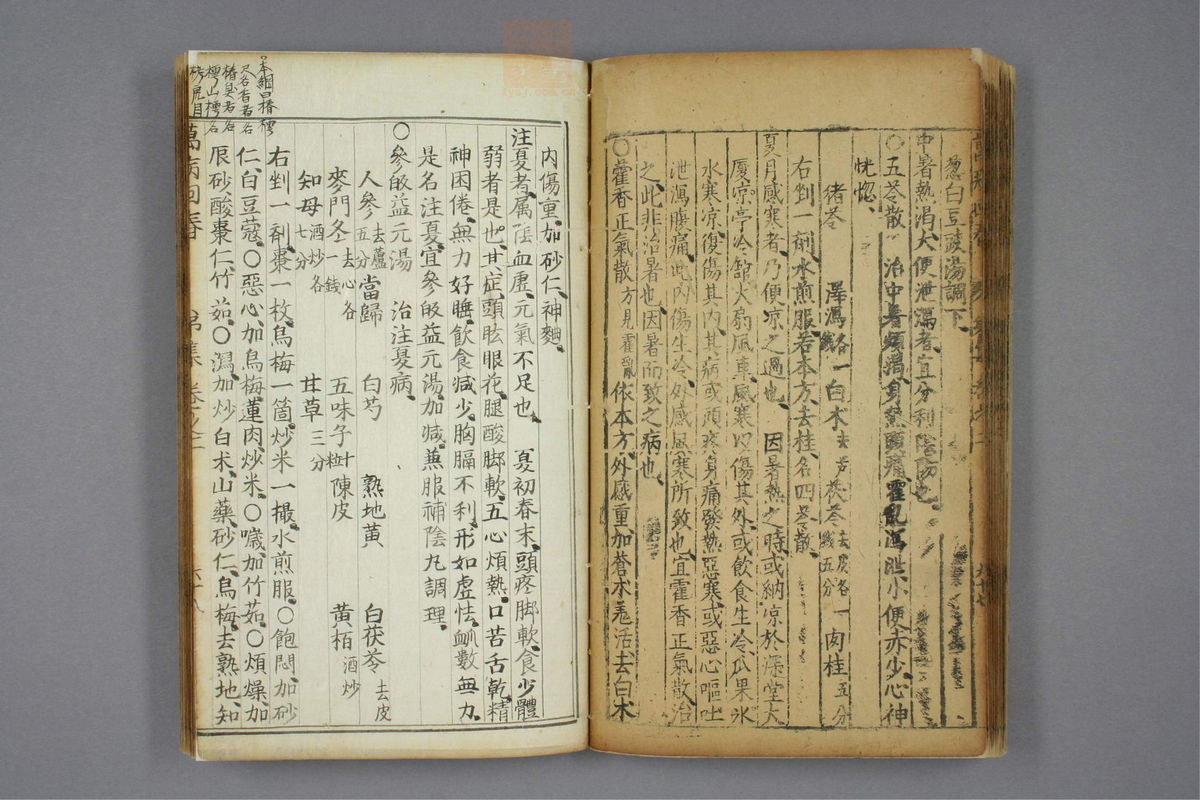 葱白豆豉湯調下
中暑熱渴大便泄瀉者宜分利陰陽也
○五苓散 治中暑煩渴身熱頭痛霍亂瀉泄小便赤少心神
恍惚
猪苓 澤瀉各一 白术去芦 茯苓去皮各一錢五分 肉桂五分
右剉一劑水煎服若本方去桂名四苓散
夏月感寒者乃便凉之過也 因暑熱之時或納凉於深堂大
厦凉亭冷館大扇風車感寒以傷其外或飲食生冷瓜果氷
水寒凉復傷其内其病或頭疼身痛發熱惡寒或惡心嘔吐
泄瀉腹痛此内傷生冷外感風寒所致也宜霍香正氣散治
之此非治暑也因暑而致之病也
○藿香正氣散方見霍亂 依本方外感重加蒼术羌活去白术
内傷重加砂仁神麯
注夏者属陰血虚元氣不足也 夏初春末頭疼脚軟食少體
弱者是也其症頭眩眼花腿酸脚軟五心煩熱口苦舌乾精
神困倦無力好睡飲食減少胸膈不利形如虚怯脉數無力
是名注夏宜參皈益元湯加減兼服補陰丸調理
○參皈益元湯 治注夏病
人參去蘆五分 當歸 白芍 熟地黄 白茯苓去皮
麥門冬去心各一錢 五味子十粒 陳皮 黄栢酒炒
知母酒炒各七分 甘草三分
右剉一劑棗一枚烏梅一箇炒米一撮水煎服○飽悶加砂
仁白豆蔻○惡心加烏梅蓮肉炒米○噦加竹茹○煩燥加
辰砂酸棗仁竹茹○瀉加炒白术山藥砂仁烏梅去熟地知
萬病回春
本綱曰椿樗
椿臭者名
樗山樗名